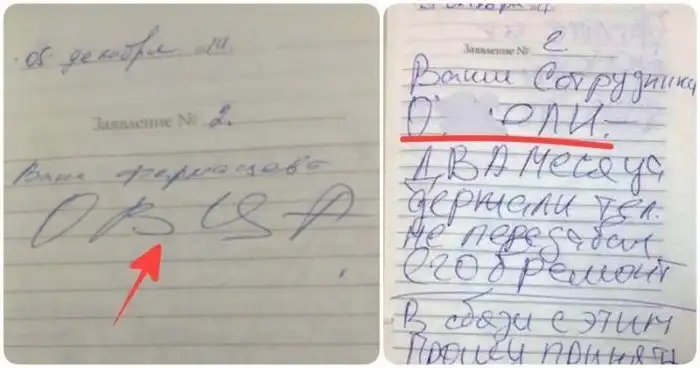 05 декабря
Заявление № 2.
Ваш фармацевт
ОВЦА
Заявление № 2.
Ваши Сотрудники
О ЕЛИ.
ДВА месяца
держали тел.
не передавая
его в ремонт
В связи с этим
Прошу принять